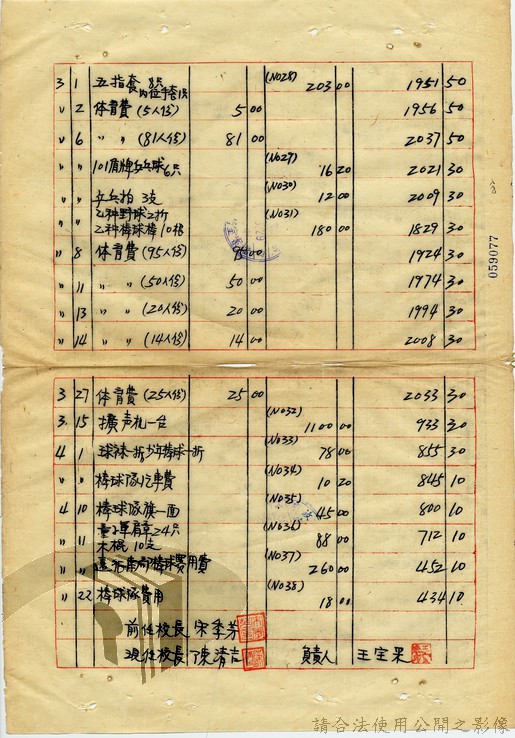 3 1 五指套 8只 內位手套1只 (No28) 203 00 1951 50
〃 2 体育費 (5人份) 5 00 1956 50
〃 6 〃 〃 (81人份) 81 00 2037 50
〃 〃 101盾牌乒乓球6只 (No29) 16 20 2021 30
〃 〃 乒乓拍 3支 (No30) 12 00 2009 30
〃 〃 乙种野球2折 乙种棒球棒10根 (No31) 180 00 1829 30
〃 8 体育費 (95人份) 95 00 1924 30
〃 11 〃 〃 (50人份) 50 00 1974 30
〃 13 〃 〃 (20人份) 20 00 1994 30
〃 14 〃 〃 (14人份) 14 00 2008 30
059077
3 27 体育費 (25人份) 25 00 2033 30
3. 15 擴声机一台 (No32) 1100 00 933 30
4 1 球一折少年棒球一折 (No33) 78 00 855 30
〃 〃 棒球隊汽車費 (No34) 10 20 845 10
4 10 棒球隊旗一面 (No35) 45 00 800 10
〃 11 童子軍肩章24只 木棍10支 (No36) 88 00 712 10
〃 〃 棒球費用費 (No37) 260 00 452 10
〃 22 棒球隊費用 (No38) 18 00 434 10
前任校長 宋季芳
現任校長 陳清吉 負責人 王宝果
請合法使用公開之影像